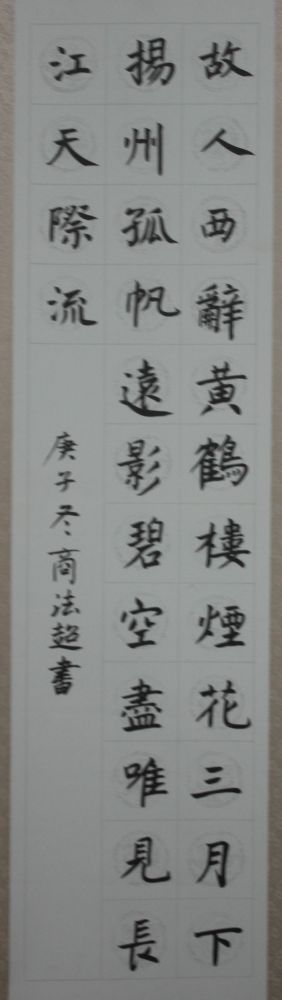 故人西辭黃鶴樓煙花三月下
揚州孤帆遠影碧空盡唯見長
江天際流
庚子冬商法超書